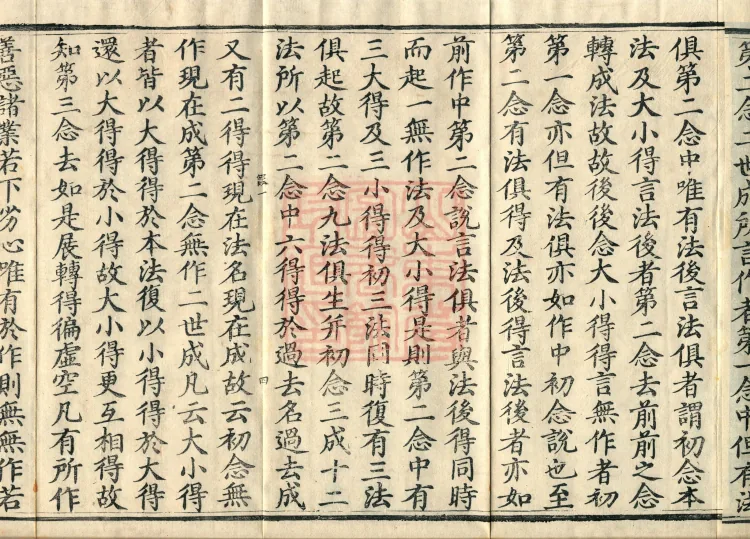 第二念二世成所言作者第一念中但有法
俱第二念中唯有法後言法俱者謂初念本
法及大小得言法後者第二念去前前之念
轉成法故故後後念大小得得言無作者初
第一念亦但有法俱亦如作中初念說也至
第二念有法俱得及法後得言法後者亦如
前作中第二念說言法俱者與法後得同時
而起一無作法及大小得是則第二念中有
三大得及三小得得初三法同時復有三法
俱起故第二念九法俱生并初念三成十二
法所以第二念中六得得於過去名過去成
又有二得得現在法名現在成故云初念無
作現在成第二念無作二世成凡云大小得
者皆以大得得於本法復以小得得於大得
還以大得得於小得故大小得更互相得故
知第三念去如是展轉得徧虛空凡有所作
善惡諸業若下劣心唯有於作則無無作若
四